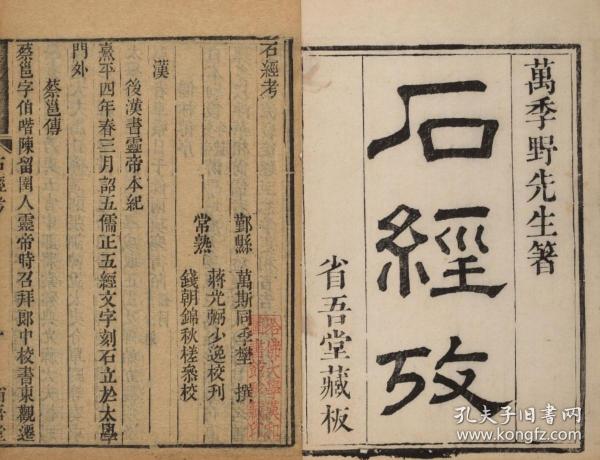 萬季野先生著
石經攷
省吾堂藏板
石經考
鄞縣 萬斯同季壄 撰
常熟 蔣光弼少逸校刊
錢朝錦秋槎叅校
漢
後漢書靈帝本紀
熹平四年春三月詔五儒正五經文字刻石立於太學
門外
蔡邕傳
蔡邕字伯喈陳留圉人靈帝時召拜郎中校書東觀遷
石經考
一
省吾堂
孔夫子旧书网
www.kongfz.com